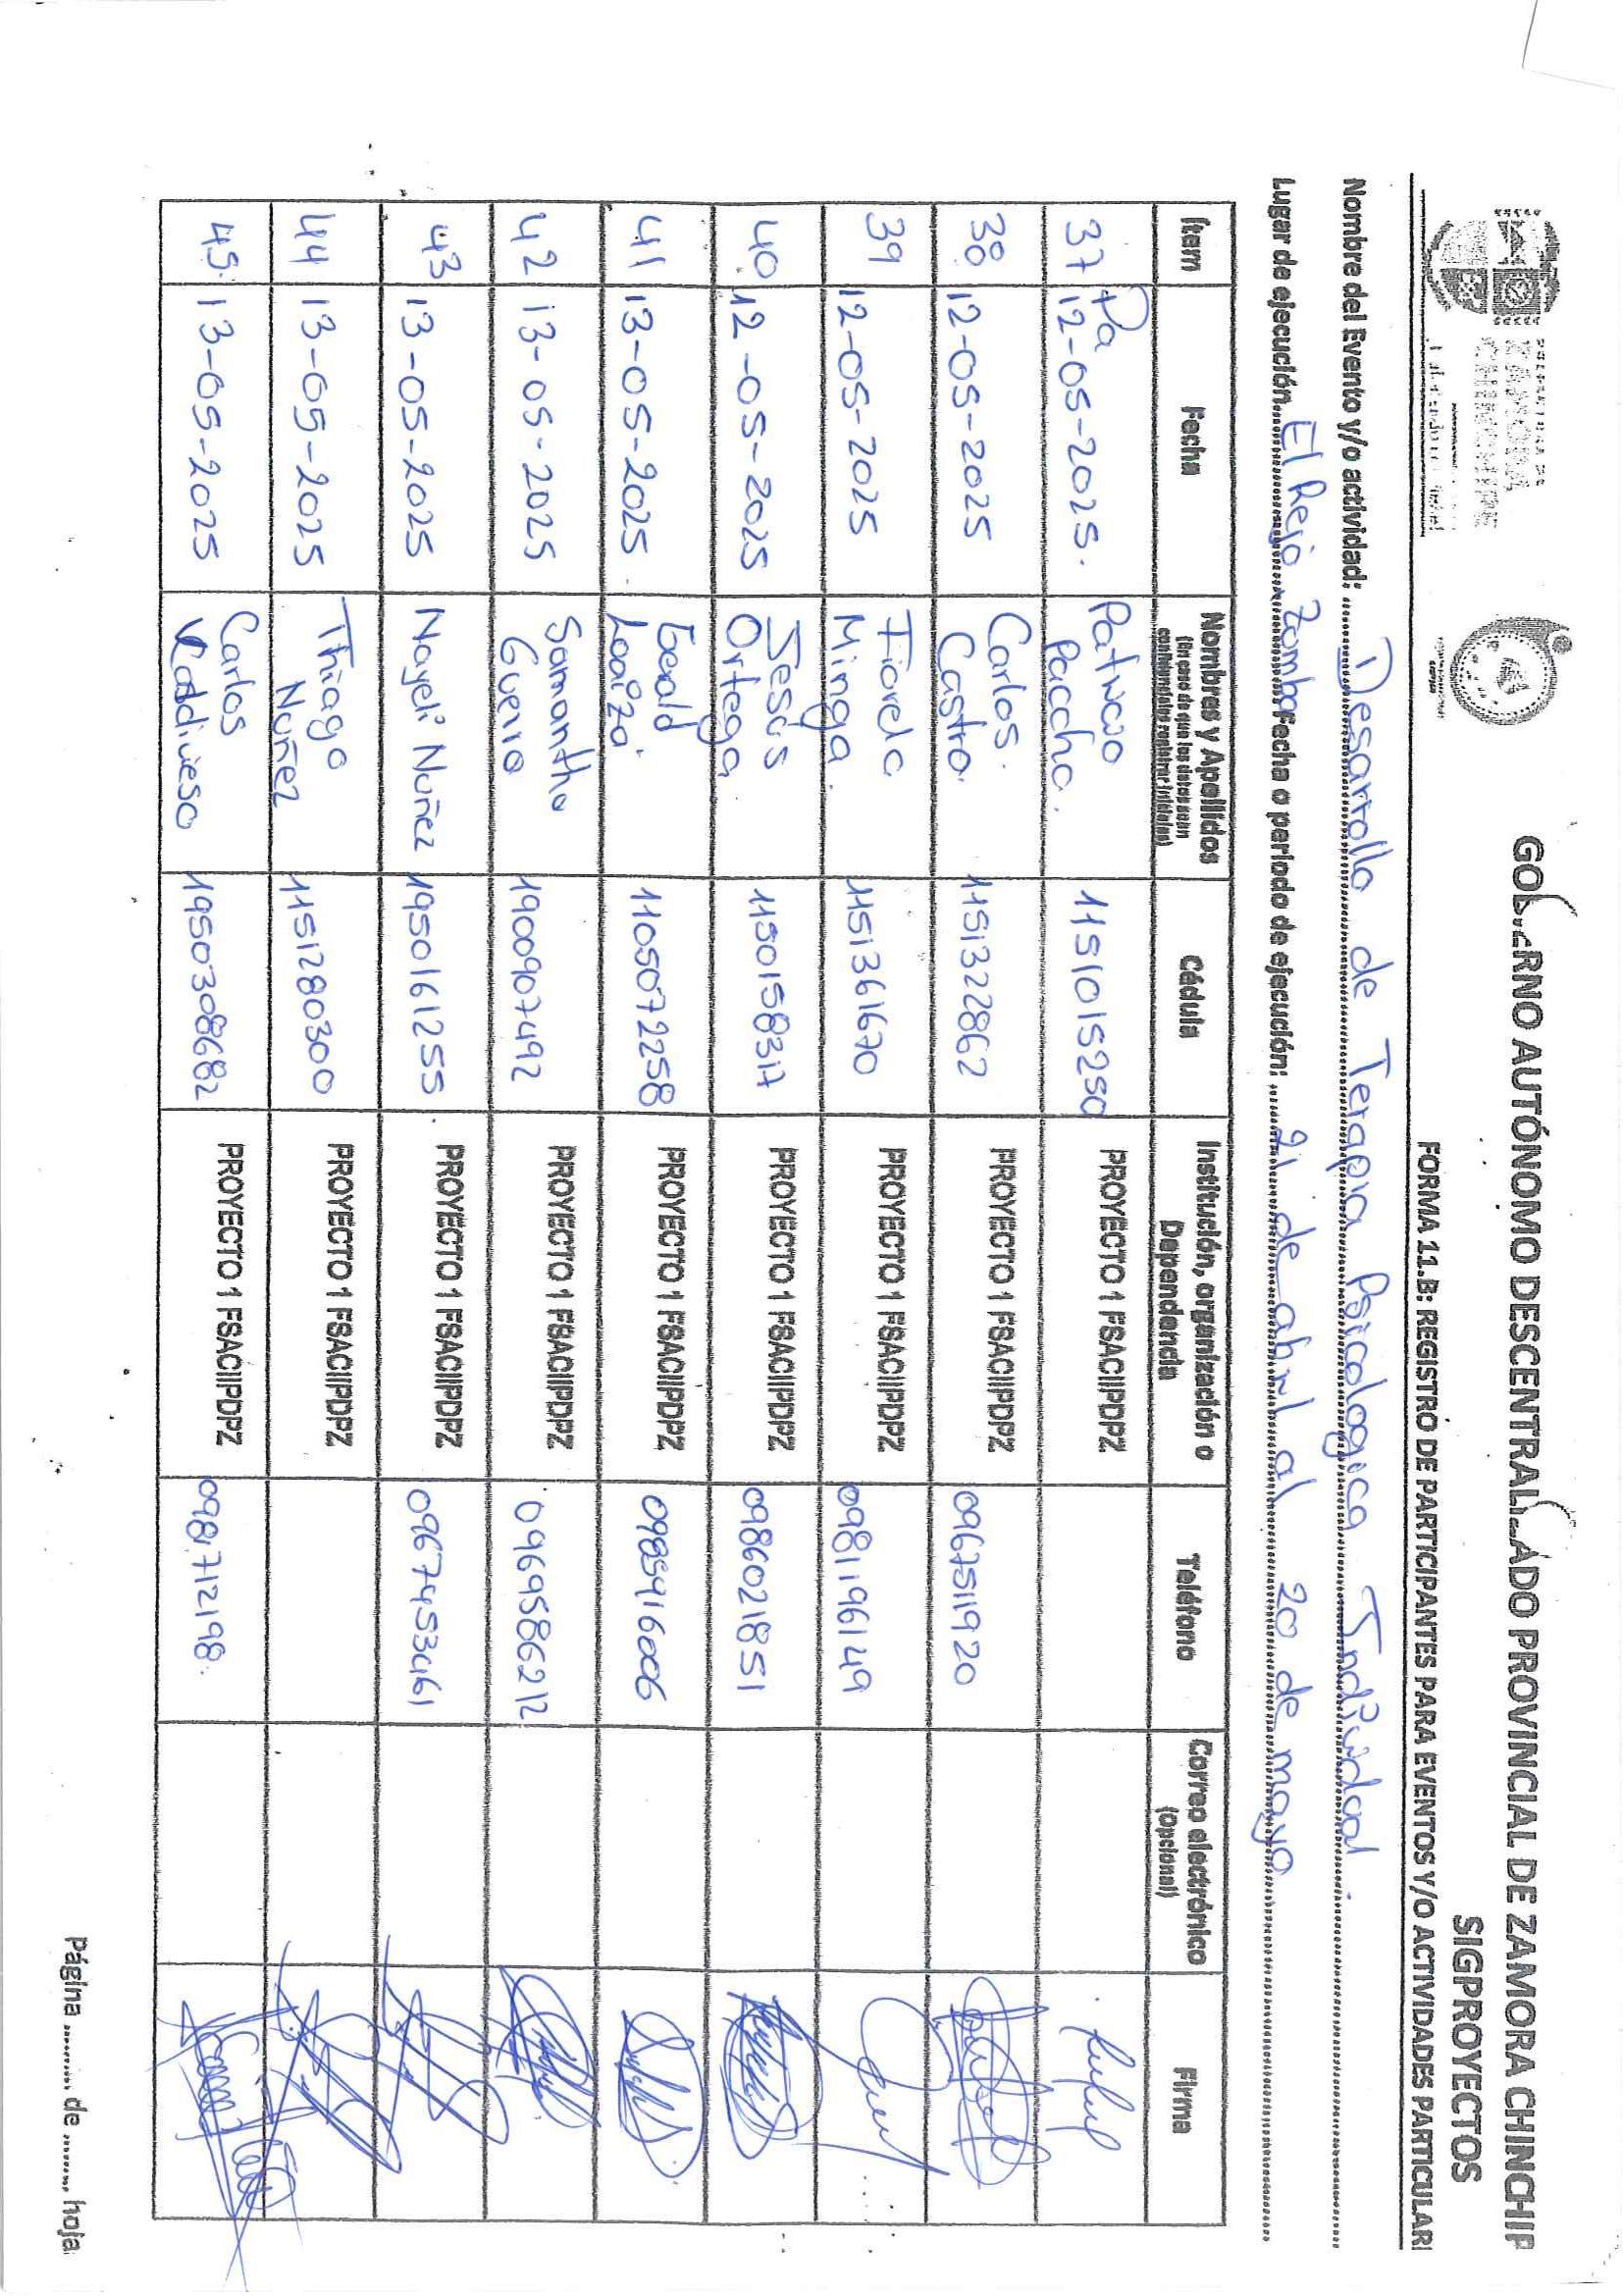 GOBIERNO AUTÓNOMO DESCENTRALIZADO PROVINCIAL DE ZAMORA CHINCHIP
SIGPROYECTOS
ZAMORA
CHINCHIPE
FORMA 11.B: REGISTRO DE PARTICIPANTES PARA EVENTOS Y/O ACTIVIDADES PARTICULAR
Nombre del Evento y/o actividad: Desarrollo de Terapia Psicologica Individual.
Lugar de ejecución El Rejo Zamba Fecha o periodo de ejecución: 21 de abril al 20 de mayo
Ítem Fecha Nombres y Apellidos (En caso de que los datos sean confidenciales registrar iniciales) Cédula Institución, organización o Dependencia Teléfono Correo electrónico (Opcional) Firma
Pa
37 12-05-2025. Patricio Paccho. 1151015250 PROYECTO 1 FSACIIPDPZ
38 12-05-2025 Carlos. Castro. 1151322862 PROYECTO 1 FSACIIPDPZ 0967511920
39 12-05-2025 Fiorela Minga. 1151361670 PROYECTO 1 FSACIIPDPZ 0981196149
40 12-05-2025 Jesús Ortega 1150158317 PROYECTO 1 FSACIIPDPZ 0986021851
41 13-05-2025. Gerald Loaiza. 1105072258 PROYECTO 1 FSACIIPDPZ 0985416006
42 13-05-2025 Samantha Guerra 1900907492 PROYECTO 1 FSACIIPDPZ 0969586212
43 13-05-2025 Nayeli Nuñez 1950161255. PROYECTO 1 FSACIIPDPZ
44 13-05-2025 Thiago Nuñez 1151280300 PROYECTO 1 FSACIIPDPZ
45. 13-05-2025 Carlos Valdivieso 1950308682 PROYECTO 1 FSACIIPDPZ 098712198.
Página ......... de ........ hoja